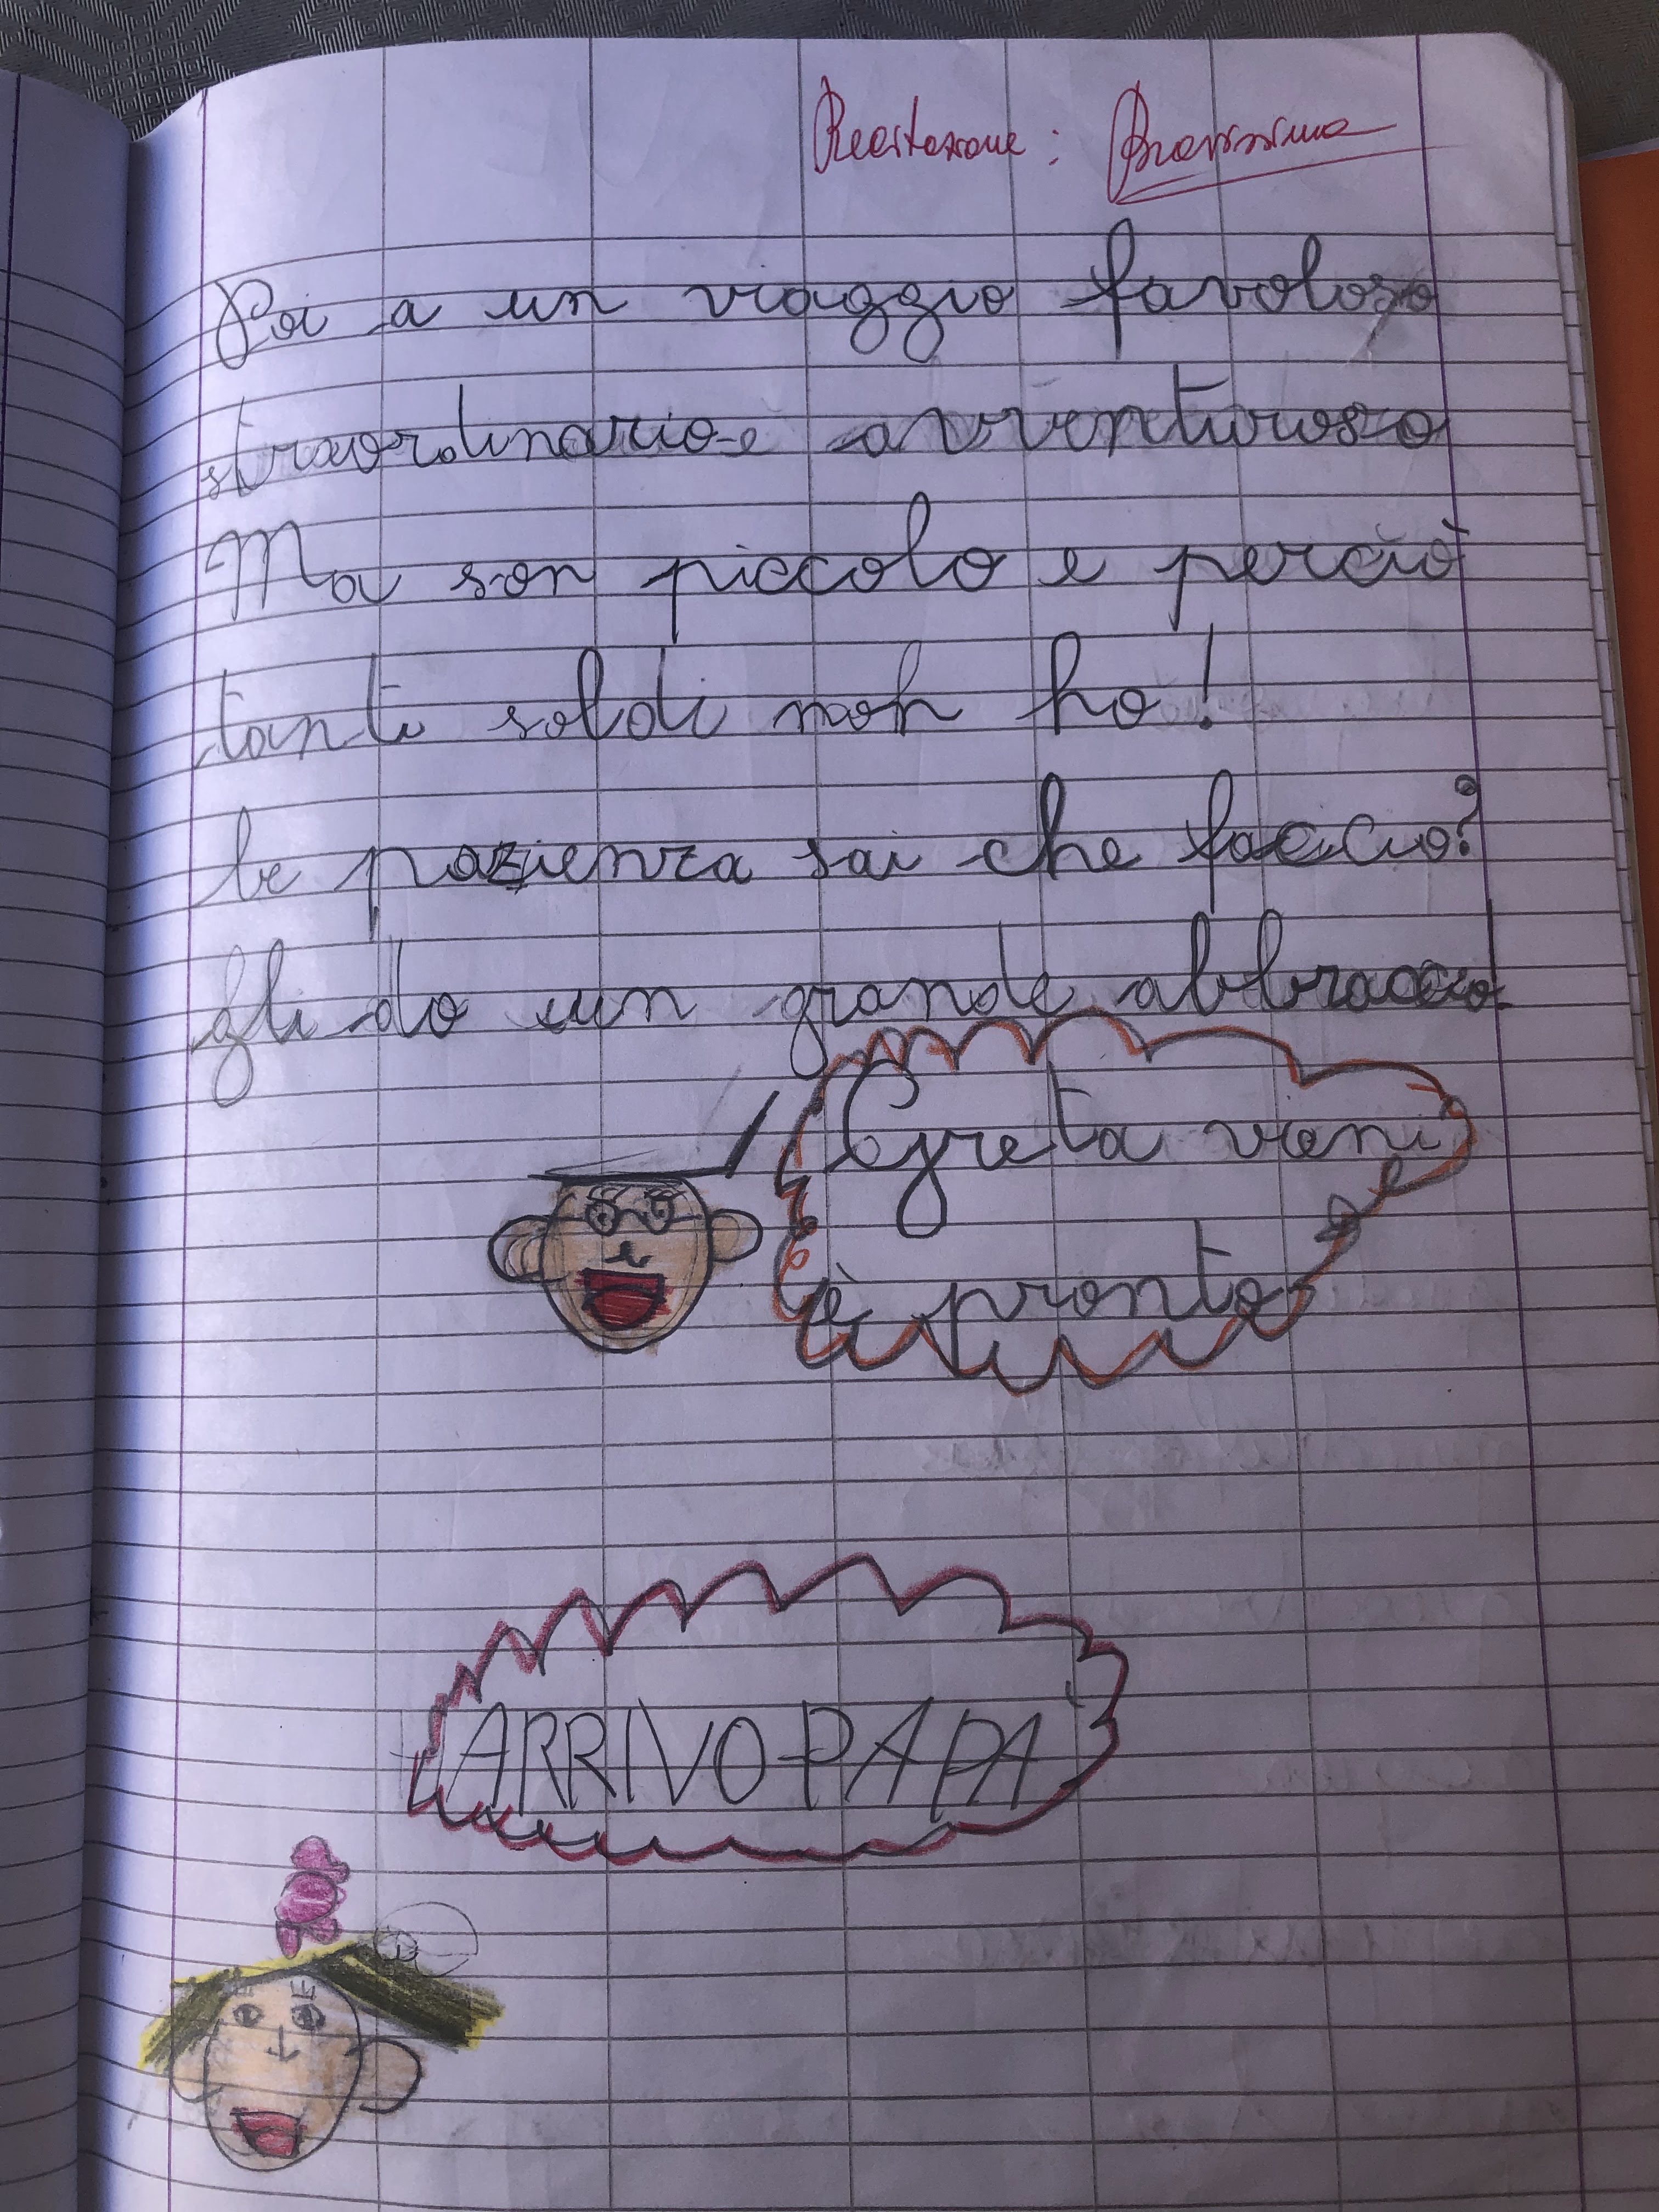 Recitazione: Bravissima
Poi a un viaggio favoloso
straordinario e avventuroso
Ma son piccolo e perciò
tanti soldi non ho!
be pazienza sai che faccio?
gli do un grande abbraccio!
Greta vieni
è pronto
ARRIVO PAPA'